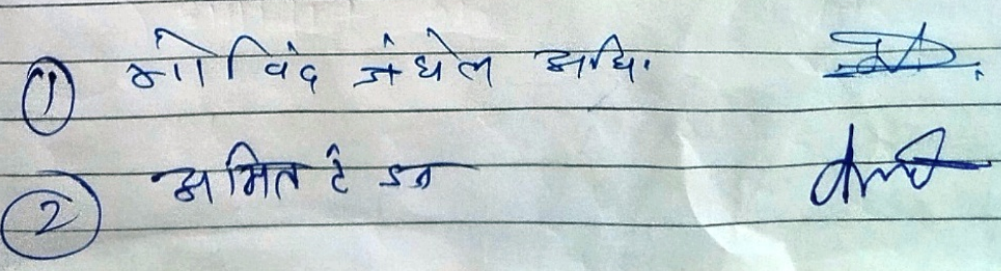 ① गोविंद जंघेल अधि.
② अमित टंडन